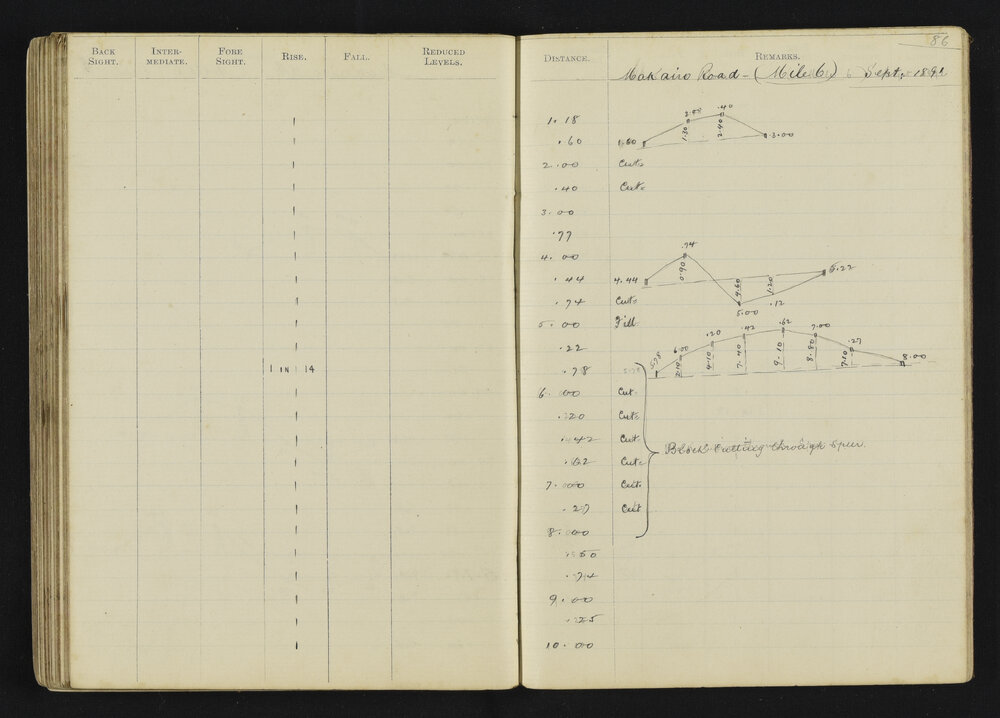 86
BACK SIGHT. INTER-MEDIATE. FORE SIGHT. RISE. FALL. REDUCED LEVELS. DISTANCE. REMARKS.
Makairo Road - (Mile 6) Sept. 1892
1 IN 14
1.18
.60
2.00 Cut
.40 Cut
3.00
.77
4.00
.44
.74 Cut
5.00 Fill
.22
.78 5.78
6.00 Cut
.20 Cut
.42 Cut
.62 Cut
7.00 Cut
.27 Cut
8.00
.50
.74
9.00
.25
10.00
1.60 2.00 .40 3.00
1.30 2.40
4.44 .74 5.00 .12 5.22
0.90 4.60 1.20
5.78 6.00 .20 .42 .62 7.00 .27 8.00
2.10 4.10 7.40 9.10 8.80 7.10
Block Cutting through Spur.